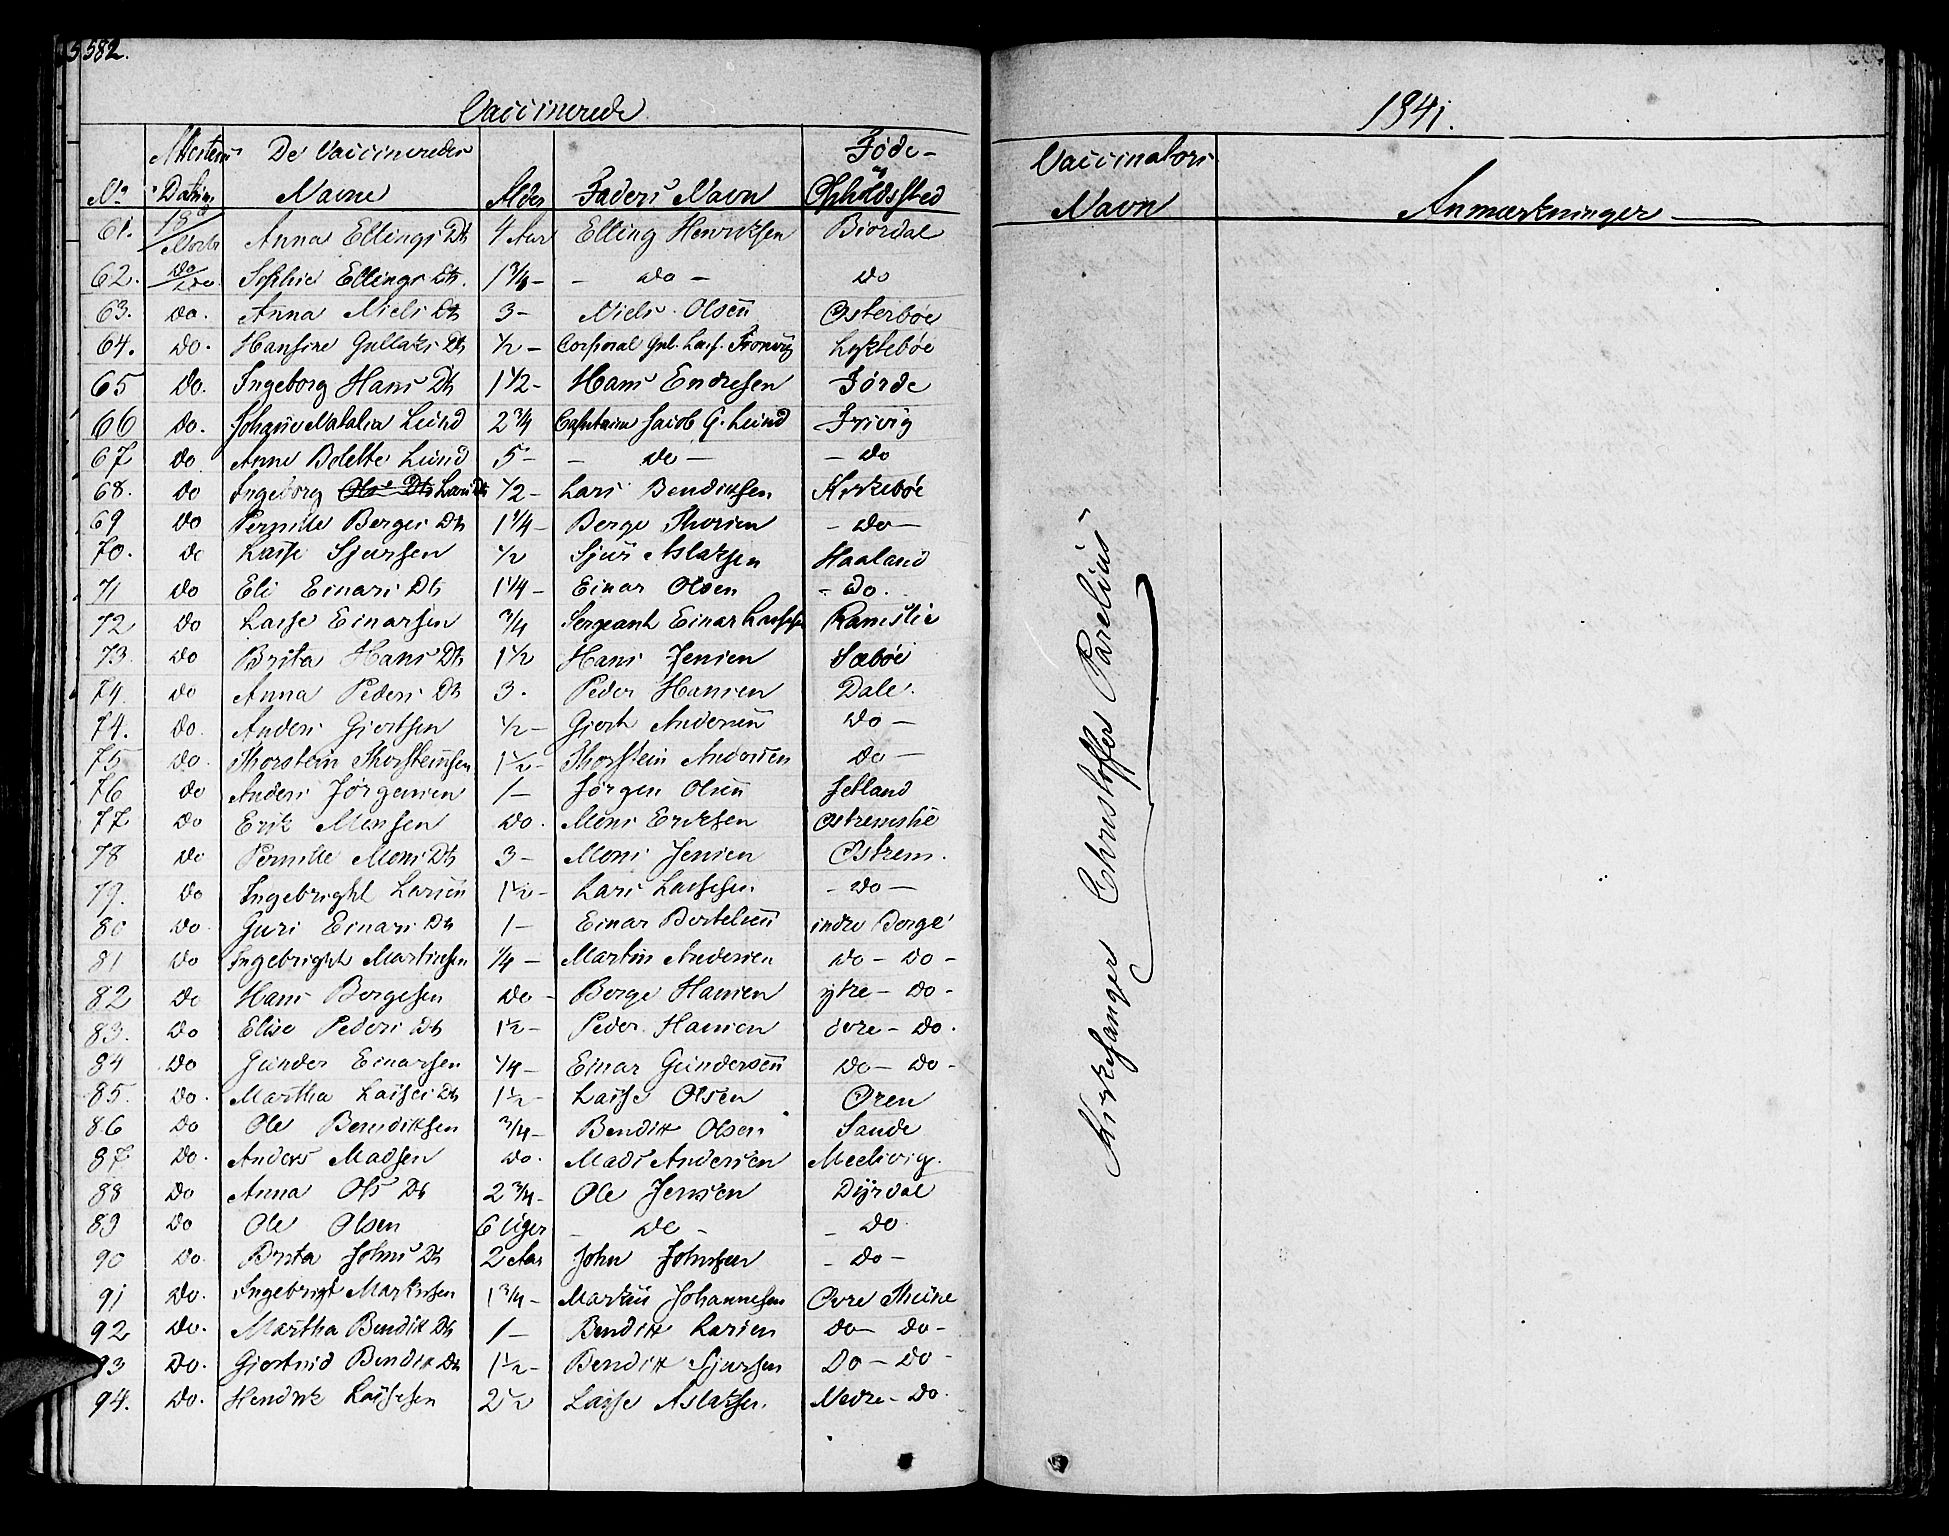 582.
Vaccinerede
1841.
Attestens De Vaccineredes Føde- Vaccinators
No Datum Navne Alder Faders Navn Opholdssted Navn Anmærkninger
61. 19d/Novbr Anna Ellings Dtr 4 Aar Elling Henriksen Biordal
62. do/do. Sophie Ellings Dtr. 1 3/4 - - do - do
63. do. Anna Niels Dtr 3 - Niels Olsen Østerbøe
64. do. Hansine Gullaks Dtr 1/2 - Corporal Gul. Lass. Lyktebøe
65 do. Ingeborg Hans Dtr 1 1/2 - Hans Endresen Førde
66 do. Johane Natalia Lund 2 3/4 Capitain Jacob G. Lund
67 do Anne Bolette Lund 5 - - do - - do
68. do Ingeborg Ols Dtr Lars Dtr 1/2 - Lars Bendiksen Kirkebøe
69 do Pernille Berges Dtr 1 1/4 - Berge Thorsen - do -
70. do Lasse Sjursen 1/2 Sjur Aslaksen Haaland
71 do Eli Einars Dtr 1 1/4 - Einar Olsen - do.
72 do Lasse Einarsen 3/4 Sergeant Einar Lassesen Ramslie
73. do Brita Hans Dtr 1 1/2 Hans Jensen Sæbøe
74. do Anna Peders Dtr 3. Peder Hansen Dale.
74. do. Anders Giertsen 1/2 - Giert Andersen do -
75 do. Thorstein Thorsteinsen 1 1/2 - Thorstein Andersen do -
76 do Anders Jørgensen 1 - Jørgen Olsen Jetland
77 do Erik Monsen do. Mons Eriksen Østremslie
78 do Pernille Mons Dtr 3 - Mons Jensen Østrem.
79. do Ingebright Larsen 1 1/2 - Lars Lassesen - do -
80 do. Guri Einars Dtr 1 - Einar Bertelsen indre Berge
81 do Ingebright Martinsen 1/4 - Martin Andersen do - do -
82 do Hans Bergesen do - Berge Hansen ytre - do -
83. do Elise Peders Dtr 1 1/2 - Peder Hansen øvre - do.
84 do Gunder Einarsen 1/4 - Einar Gundersen do - do -
85. do. Martha Lasses Dtr 1 1/2 - Lasse Olsen Øren
86 do Ole Bendiksen 3/4 - Bendik Olsen Sande
87 do. Anders Madsen do. Mads Andersen Meelsvig.
88 do Anna Ols Dtr 2 3/4 - Ole Jensen Dyrdal
89 do Ole Olsen 6 Uger - do - - do
90 do. Brita Johns Dtr 2 Aar John Johnsen - do -
91 do. Ingebrigt Markusen 1 3/4 - Markus Johannesen Øvre
92 do. Martha Bendik Dtr 1 - Bendik Larsen do - do -
93 do. Giertrud Bendik Dtr 1 1/2 - Bendik Sjursen do - do -
94. do. Hendrik Lassesen 2 1/2 Lasse Aslaksen. Nedre - do.
Kirkesanger Christoffer Parelius